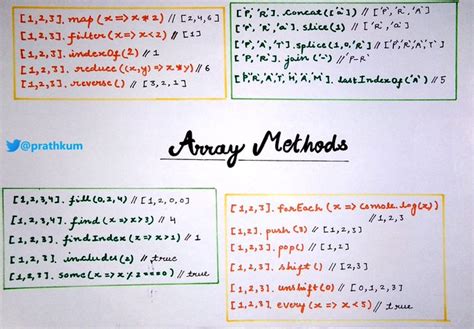 [1,2,3]. map (x => x * 2) // [2,4,6]
[1,2,3]. filter(x => x < 2) // [1]
[1,2,3]. indexOf(2) // 1
[1,2,3]. reduce((x,y) => x * y) // 6
[1,2,3]. reverse() // [3,2,1]
['P','R'].concat(['a']) // ['P','R','A']
['P','R','a'].slice(1) // ['R','a']
['P','A','T'].splice(1,0,'R') // ['P','R','A','T']
['P','R'].join('-') // 'P-R'
['P','R','A','T','H','A','M'].lastIndexOf('A') // 5
@prathkum
Array Methods
[1,2,3,4]. fill(0,2,4) // [1,2,0,0]
[1,2,3,4]. find(x => x > 3) // 4
[1,2,3]. findIndex(x => x > 1) // 1
[1,2,3]. includes(2) // true
[1,2,3]. some(x => x % 2 === 0) // true
[1,2,3]. forEach (x => console.log(x))
// 1,2,3
[1,2]. push (3) // [1,2,3]
[1,2,3]. pop() // [1,2]
[1,2,3]. shift () // [2,3]
[1,2,3]. unshift(0) // [0,1,2,3]
[1,2,3]. every (x => x < 5) // true